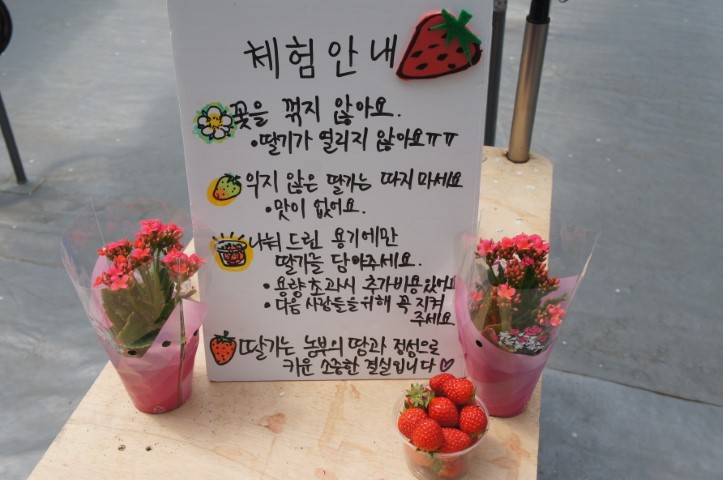 체험안내
꽃을 꺾지 않아요.
•딸기가 열리지 않아요ㅠㅠ
익지 않은 딸기는 따지마세요
•맛이 없어요.
나눠 드린 용기에만
딸기를 담아주세요.
•용량초과시 추가비용있어요
•다음 사람들을위해 꼭 지켜
주세요
딸기는 농부의 땀과 정성으로
키운 소중한 결실입니다♡